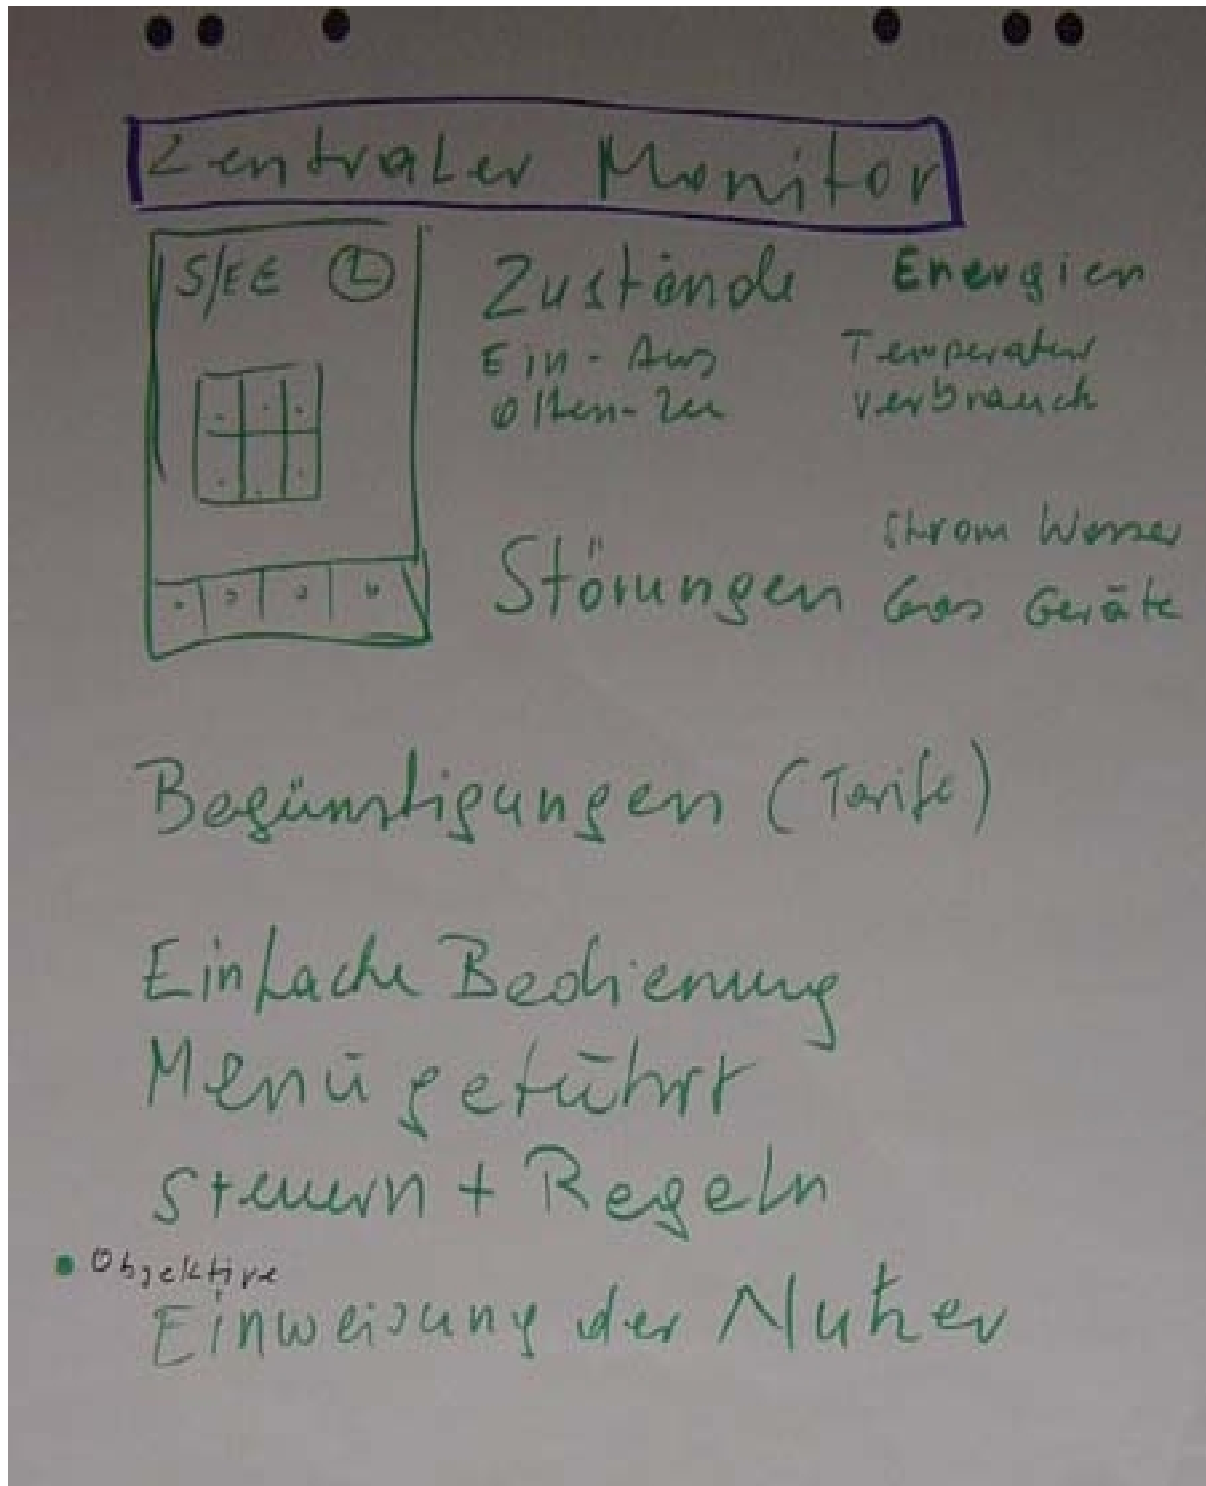 Zentraler Monitor
S/EE
Zustände
Energien
Ein-Aus
Temperatur
Offen-Zu
verbrauch
Störungen
Strom Wasser
Gas Geräte
Begünstigungen (Tarife)
Einfache Bedienung
Menü geführt
Steuern + Regeln
• Objektive
Einweisung der Nutzer